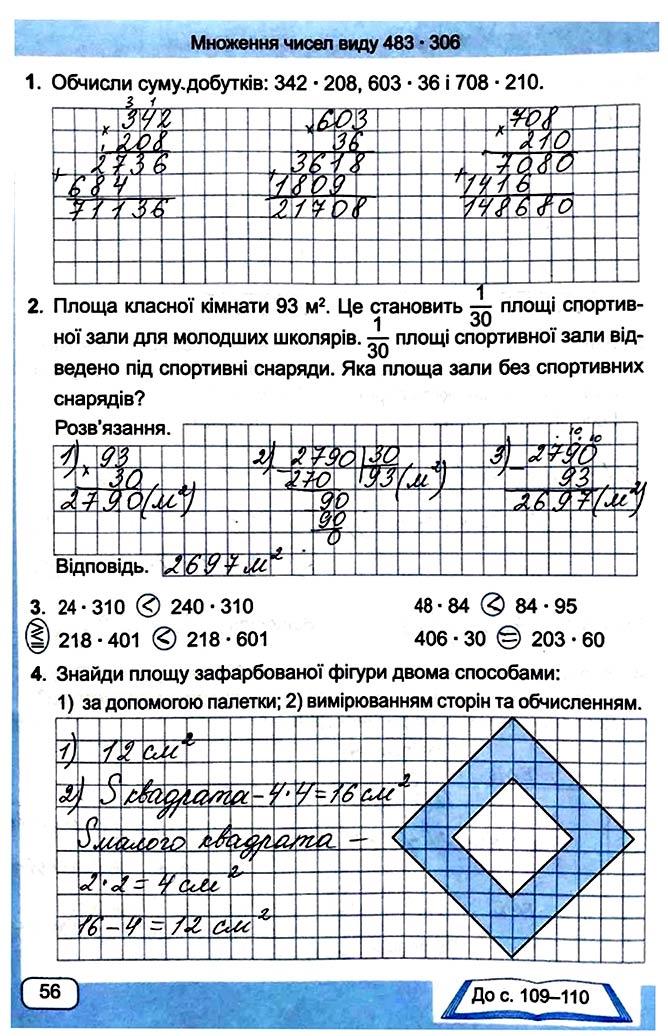 Множення чисел виду 483 · 306
1. Обчисли суму добутків: 342 · 208, 603 · 36 і 708 · 210.
3 1
× 342
208
+ 2736
684
71136
× 603
36
+ 3618
1809
21708
× 708
210
+ 7080
1416
148680
2. Площа класної кімнати 93 м². Це становить 1/30 площі спортив-
ної зали для молодших школярів. 1/30 площі спортивної зали від-
ведено під спортивні снаряди. Яка площа зали без спортивних
снарядів?
Розв'язання.
1) × 93
30
2790 (м²)
2) − 2790 | 30
270 93 (м²)
90
90
0
10 10
3) − 2790
93
2697 (м²)
Відповідь. 2697 м²
3. 24 · 310 < 240 · 310 48 · 84 < 84 · 95
218 · 401 < 218 · 601 406 · 30 = 203 · 60
4. Знайди площу зафарбованої фігури двома способами:
1) за допомогою палетки; 2) вимірюванням сторін та обчисленням.
1) 12 см²
2) S квадрата – 4 · 4 = 16 см²
S малого квадрата –
2 · 2 = 4 см²
16 – 4 = 12 см²
56
До с. 109–110